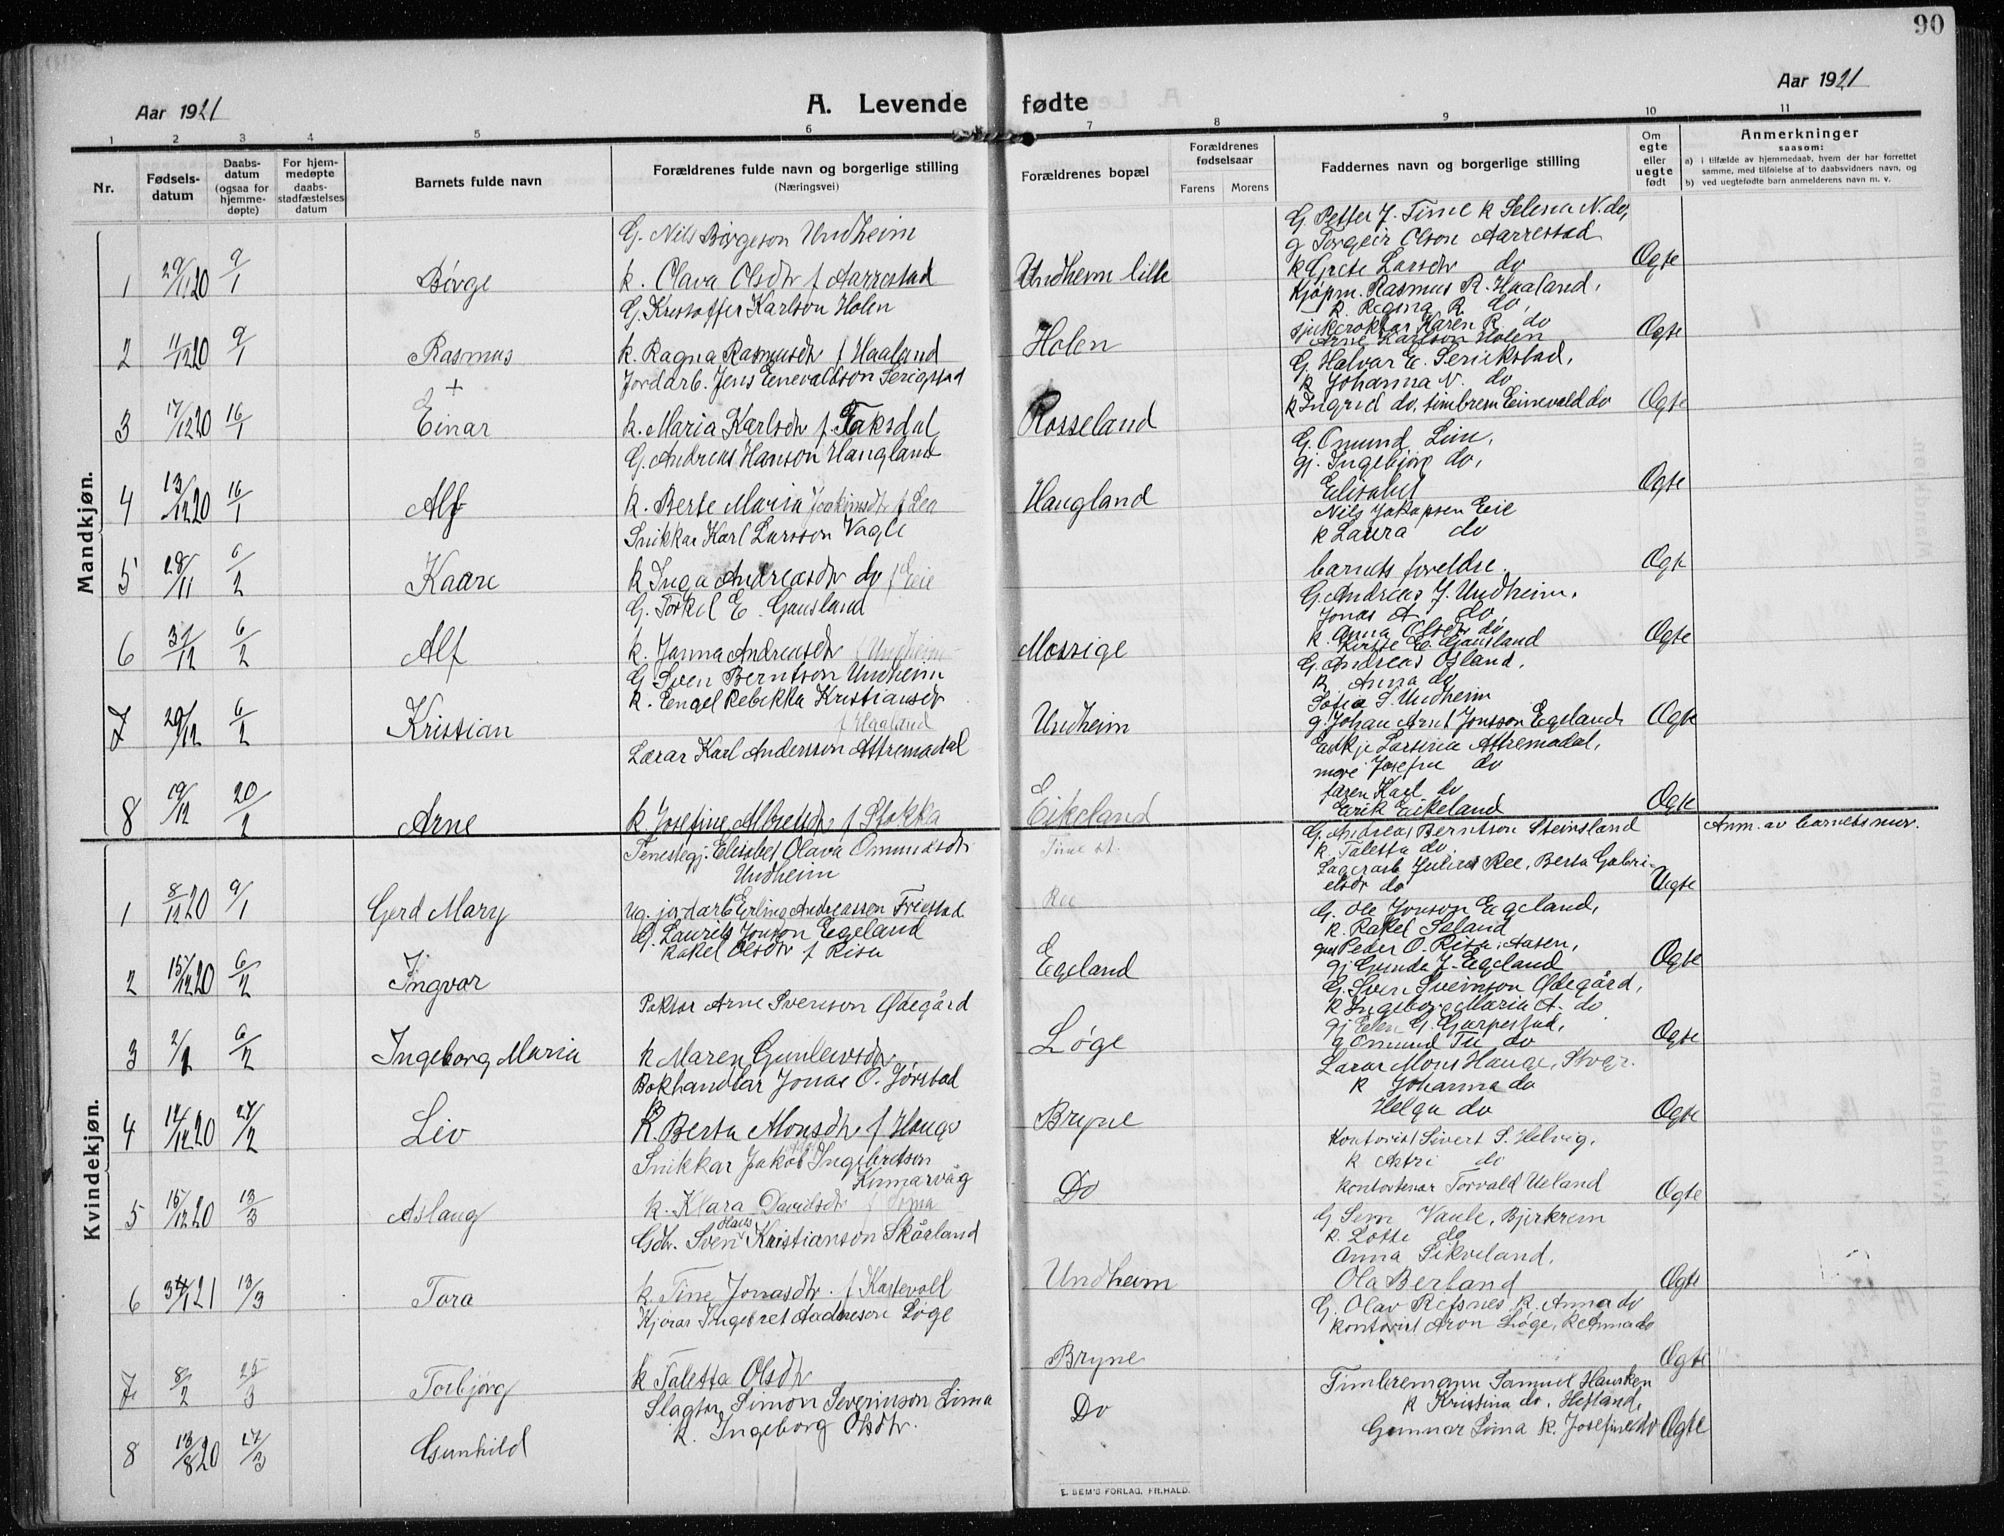 90
Aar 1921
A. Levende fødte
Aar 1921
1 2 3 4 5 6 7 8 9 10 11
Nr.
Fødsels-
datum
Daabs-
datum
(ogsaa for
hjemme-
døpte)
For hjem-
medøpte
daabs-
stadfæstelses
datum
Barnets fulde navn
Forældrenes fulde navn og borgerlige stilling
(Næringsvei)
Forældrenes bopæl
Forældrenes
fødselsaar
Farens Morens
Faddernes navn og borgerlige stilling
Om
egte
eller
uegte
født
Anmerkninger
saasom:
a) i tilfælde av hjemmedaab, hvem der har forrettet
samme, med tilføielse af to daabsvidners navn, og
b) ved uegtefødte barn anmelderens navn m. v.
Mandkjøn.
G. Nils Børgeson Undheim
1 29/11 20 9/1 Børge k. Olava Olsdtr f Aarrestad Undheim lille
G. Petter J. Time k Selena N. do,
g Torgeir Olson Aarrestad
k Grete Larsdtr do Ogte
G. Kristoffer Karlson Holen
2 11/12 20 9/1 Rasmus k. Ragna Rasmusdtr f Haaland Holen
Kjøpm. Rasmus R. Haaland,
k. Regina R. do,
sjukerøktar Karen R. do
Arne Karlson Holen Ogte
Jordarb. Jens Enevaldson Serigstad
3 17/12 20 16/1 Einar k. Maria Karlsdtr f. Taksdal Rosseland
G. Halvar E. Serikstad,
k Johanna N. do
k Ingrid do, timbrem Einevald do Ogte
G. Andreas Hanson Haugland
4 13/12 20 16/1 Alf k. Berte Maria Joakimsdtr f Lea Haugland
G. Omund Lim,
gj. Ingebjør do,
Elisabet Ogte
Nils Jakopsen Eie
k Laura do
Snikkar Karl Larsson Vagle
5 28/11 6/2 Kaare k Inga Andreasdtr do f Eie
barnets foreldre. Ogte
G. Torkel E. Gausland
6 3/12 6/2 Alf k. Janna Andreasdtr f Undheim Mossige
G. Andreas J. Undheim,
Jonas A. do
k. Anna Olsdtr do
Kirste E. Gausland Ogte
G Sven Berntson Undheim
k. Engel Rebekka Kristiansdtr
7 29/12 6/2 Kristian f Haaland Undheim
G. Andreas Osland,
k Anna do
Sofia S. Undheim
g. Johan Arnt Jonsson Egeland Ogte
Lærar Karl Andersson Attremadal
8 19/12 20/2 Arne k Josefine Albretsdtr f Stokka Eikeland
Larsina Attremadal,
more Josefine do
faren Karl do
Erik Eikeland Ogte
Kvindekjøn.
Tenestegj. Elisabet Olava Omundsdtr
Undheim
Time st.
1 8/12 20 9/1 Gerd Mary ug. jordarb Erling Andreassen Friestad Ree
G. Andreas Berntson Steinsland
k. Taletta do
Lagerarb Julius Ree, Berta Gabri-
elsdr do Uegte
Anm. av barnets mor.
G. Laurits Jonson Egeland
Rakel Olsdtr f Risa
2 15/12 20 6/2 Ingvar Egeland
G. Ole Jonson Egeland,
k. Rakel Saland
Peder O. Risa, Aasen,
gj Gunda J. Egeland Ogte
Paktar Arne Svenson Ødegård
3 2/1 6/2 Ingeborg Maria k Maren Gunlevsdtr Løge
G. Sven Sveinson Ødegård,
k Ingeborg Maria A. do
gj Elen G. Gjerpestad,
g Omund Tu do Ogte
Bokhandlar Jonas O. Jørstad
4 14/12 20 27/2 Liv k. Berta Monsdtr f Hauge Bryne
Lærar Mons Hauge, Stvgr.
k Johanna do
Helga do Ogte
Snikkar Jakob Ingebretson
Kinnarvåg
5 15/12 20 13/3 Aslaug k. Klara Davidsdtr f Soma Do
Kontorist Sivert S. Helvig,
k Astri do
kontortenar Torvald Ueland Ogte
Gdb. Sven Kristianson Skårland
6 31/1 21 13/3 Tora k. Tine Jonasdtr. f Kartevoll Undheim
G Sem Vaule, Bjerkreim
k. Lotte do
Anna Sikveland,
Ola Berland Ogte
Kjørar Ingebret Aadneson Løge
7 8/2 25/3 Torbjørg k Taletta Olsdtr Bryne
G. Olav Refsnes k. Anna do
kontorist Aron Løge, k Anna do
Ogte
Slagtar Simon Severinson Lima
k. Ingeborg Olsdtr.
8 13/8 20 27/3 Gunhild Do
Timbremann Samuel Hausken
k Kristina do, Hetland,
Gunnar Lima k. Josefine do Ogte
E. SEM'S FORLAG, FR.HALD.